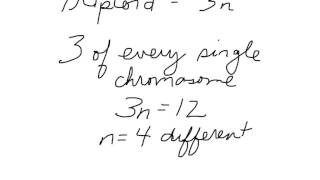 Triploid - 3n
3 of every single
chromasome
3n = 12
n = 4 different